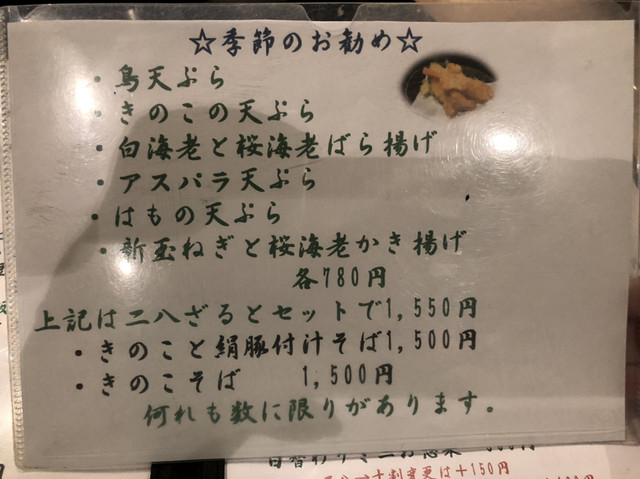 ☆季節のお勧め☆
・鳥天ぷら
・きのこの天ぷら
・白海老と桜海老ばら揚げ
・アスパラ天ぷら
・はもの天ぷら
・新玉ねぎと桜海老かき揚げ
各780円
上記は二八ざるとセットで1,550円
・きのこと絹豚付汁そば1,500円
・きのこそば 1,500円
何れも数に限りがあります。
十割変更は+150円